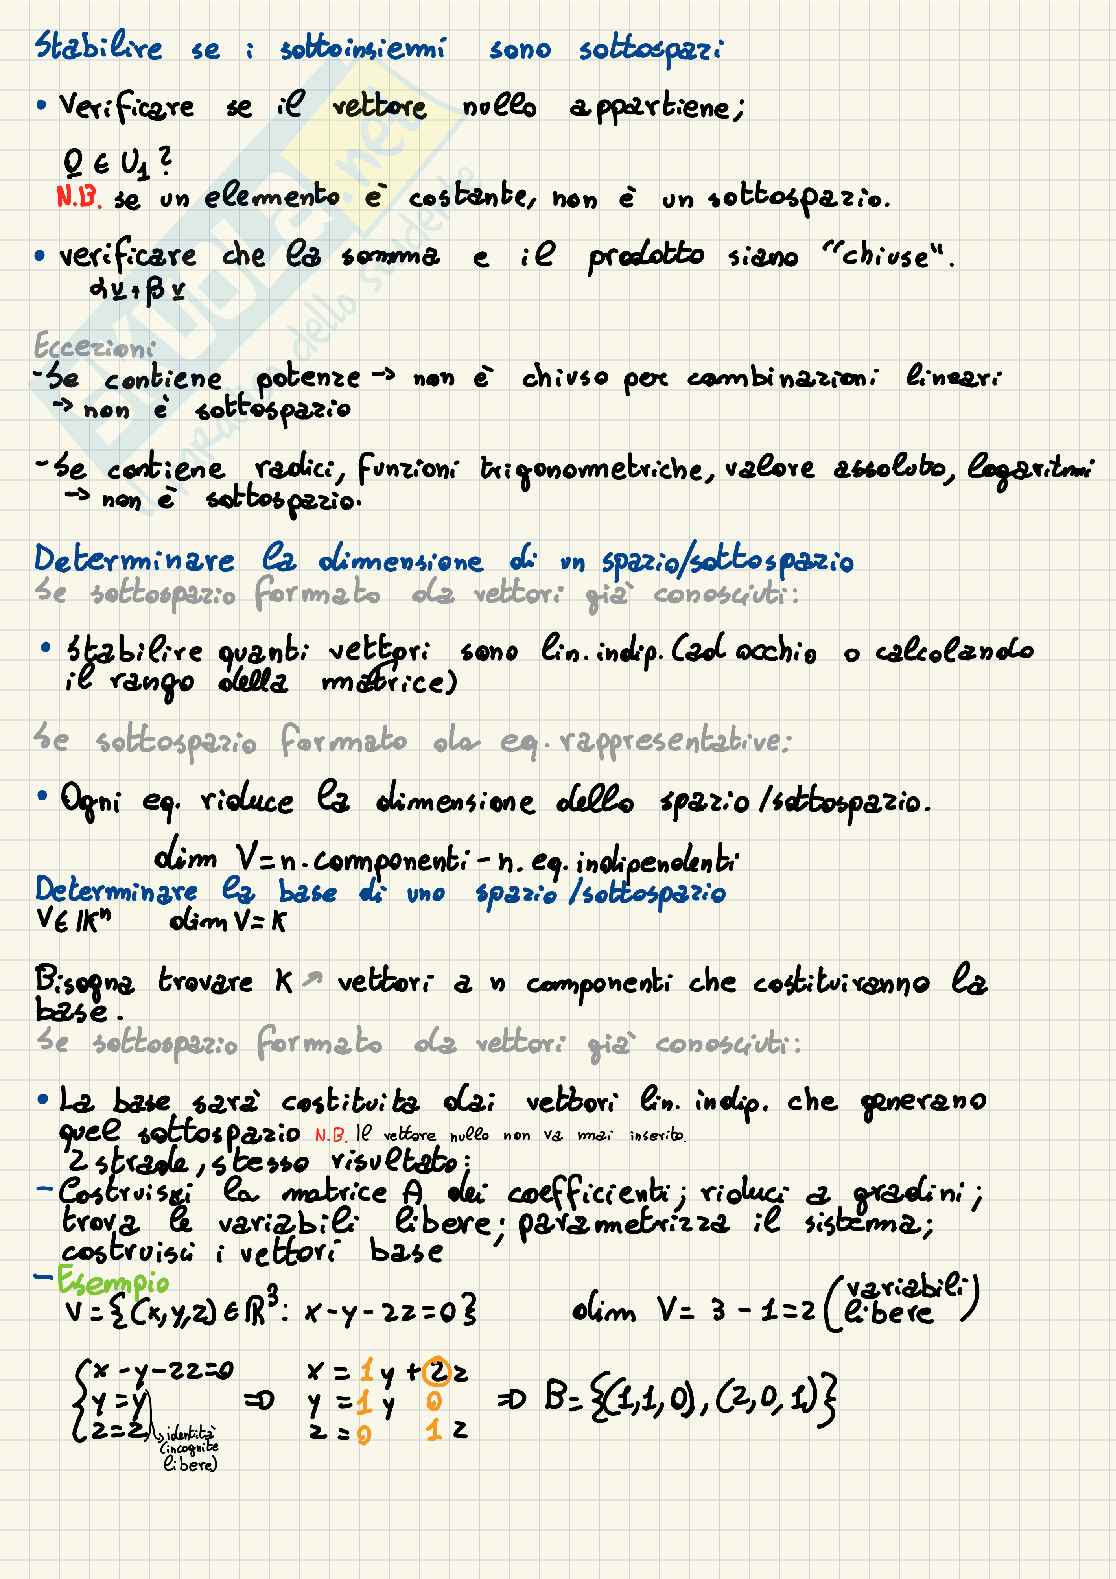 Stabilire se i sottoinsiemi sono sottospazi
• Verificare se il vettore nullo appartiene;
0 ∈ U₁ ?
N.B. se un elemento è costante, non è un sottospazio.
• verificare che la somma e il prodotto siano "chiuse".
αv+βv
Eccezioni
-Se contiene potenze → non è chiuso per combinazioni lineari
→ non è sottospazio
-Se contiene radici, funzioni trigonometriche, valore assoluto, logaritmi
→ non è sottospazio.
Determinare la dimensione di un spazio/sottospazio
Se sottospazio formato da vettori già conosciuti:
• Stabilire quanti vettori sono lin. indip. (ad occhio o calcolando
il rango della matrice)
Se sottospazio formato da eq. rappresentative:
• Ogni eq. riduce la dimensione dello spazio/sottospazio.
dim V = n. componenti - n. eq. indipendenti
Determinare la base di uno spazio/sottospazio
V ∈ Kⁿ dim V = K
Bisogna trovare K ↗ vettori a n componenti che costituiranno la
base.
Se sottospazio formato da vettori già conosciuti:
• La base sarà costituita dai vettori lin. indip. che generano
quel sottospazio N.B. Il vettore nullo non va mai inserito.
2 strade, stesso risultato:
- Costruisci la matrice A dei coefficienti; riduci a gradini;
trova le variabili libere; parametrizza il sistema;
costruisci i vettori base
- Esempio
V = {(x,y,z) ∈ ℝ³: x-y-2z=0} dim V = 3 - 1 = 2 (variabili libere)
{x-y-2z=0 x = 1y + 2z
y=y ⇒ y = 1y 0 ⇒ B={(1,1,0),(2,0,1)}
z=z z = 0 1z
→ identità
(incognite
libere)
SKUOLA.net